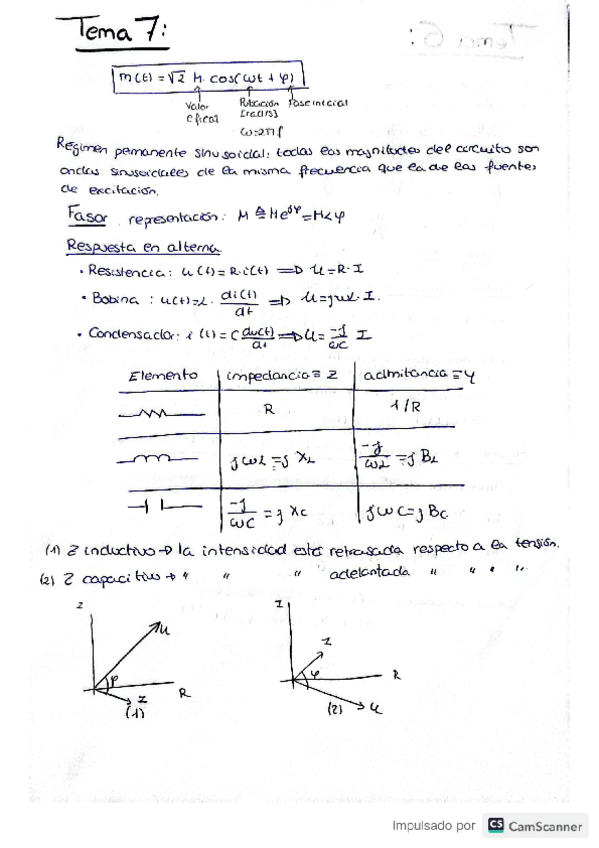 Tema 7:
m(t) = √2 M. cos(ωt + φ)
Valor eficaz
Pulsación [rad/s]
Fase inicial
ω=2πf
Régimen permanente sinusoidal: todas las magnitudes del circuito son
ondas sinusoidales de la misma frecuencia que la de las fuentes
de excitación.
Fasor representación: M ≙ Me^jφ = M∠φ
Respuesta en alterna
• Resistencia: u(t) = R·i(t) ⇒ U = R·I
• Bobina : u(t)=L· di(t)/dt ⇒ U=jωL·I.
• Condensador: i(t) = C du(t)/dt ⇒ U= -j/ωC I
Elemento impedancia ≡ Z admitancia ≡ Y
R 1/R
jωL = j XL -j/ωL = j BL
-j/ωC = j Xc jωC = j Bc
(1) Z inductivo → la intensidad está retrasada respecto a la tensión.
(2) Z capacitivo → " " " adelantada " " " ".
I U φ R I (1)
I I φ R (2) U
Impulsado por CS CamScanner